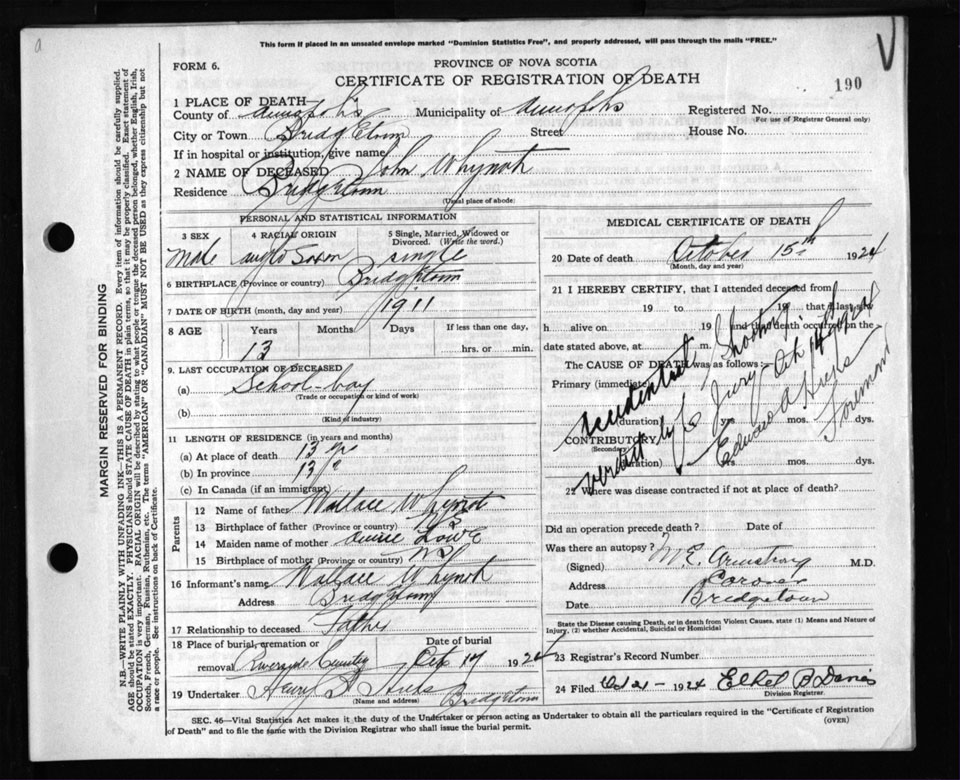 a
This form if placed in an unsealed envelope marked "Dominion Statistics Free", and properly addressed, will pass through the mails "FREE."
FORM 6.
PROVINCE OF NOVA SCOTIA
CERTIFICATE OF REGISTRATION OF DEATH
190
1 PLACE OF DEATH
County of Annapolis Municipality of Annapolis Registered No.
(For use of Registrar General only)
City or Town Bridgetown Street House No.
If in hospital or institution, give name
2 NAME OF DECEASED John Whynot
Residence Bridgetown
(Usual place of abode)
PERSONAL AND STATISTICAL INFORMATION
3 SEX 4 RACIAL ORIGIN 5 Single, Married, Widowed or Divorced. (Write the word.)
Male Anglo Saxon Single
6 BIRTHPLACE (Province or country) Bridgetown
7 DATE OF BIRTH (month, day and year) 1911
8 AGE Years Months Days If less than one day,
13 hrs. or min.
9. LAST OCCUPATION OF DECEASED
(a) School-boy
(Trade or occupation or kind of work)
(b)
(Kind of industry)
11 LENGTH OF RESIDENCE (in years and months)
(a) At place of death 13 yr
(b) In province 13 "
(c) In Canada (if an immigrant)
Parents
12 Name of father Wallace Whynot
13 Birthplace of father (Province or country)
14 Maiden name of mother Lowe
15 Birthplace of mother (Province or country) N S
16 Informant's name Wallace Whynot
Address Bridgetown
17 Relationship to deceased Father
18 Place of burial, cremation or removal Date of burial
Riverside Cemetery Oct 17 1924
19 Undertaker Henry B Hicks Bridgetown
(Name and address)
MEDICAL CERTIFICATE OF DEATH
20 Date of death October 15th 1924
(Month, day and year)
21 I HEREBY CERTIFY, that I attended deceased from
19 to 19 that I last saw
h alive on 19 and that death occurred on the
date stated above, at m.
The CAUSE OF DEATH was as follows:
Primary (immediate)
Accidental Shooting
(duration) yrs. mos. dys.
CONTRIBUTORY
(Secondary)
(duration) yrs. mos. dys.
Verdict by Jury Oct
Edward A Hicks
Foreman
22 Where was disease contracted if not at place of death?
Did an operation precede death? Date of
Was there an autopsy?
(Signed) M.E. Armstrong M.D.
Address Coroner
Date Bridgetown
State the Disease causing Death, or in death from Violent Causes, state (1) Means and Nature of Injury, (2) whether Accidental, Suicidal or Homicidal
23 Registrar's Record Number
24 Filed Oct 21 - 1924 Ethel B Davis
Division Registrar.
SEC. 46—Vital Statistics Act makes it the duty of the Undertaker or person acting as Undertaker to obtain all the particulars required in the "Certificate of Registration of Death" and to file the same with the Division Registrar who shall issue the burial permit.
(OVER)
MARGIN RESERVED FOR BINDING
N.B.—WRITE PLAINLY WITH UNFADING INK—THIS IS A PERMANENT RECORD. Every item of information should be carefully supplied.
AGE should be stated EXACTLY. PHYSICIANS should STATE CAUSE OF DEATH in plain terms, so that it may be properly classified. Exact statement of
OCCUPATION is very important. RACIAL ORIGIN will be described by stating to what people or tongue the deceased person belonged, whether English, Irish,
Scotch, French, German, Russian, Ruthenian, etc. The terms "AMERICAN" or "CANADIAN" MUST NOT BE USED as they express citizenship but not
a race or people. See instructions on back of Certificate.